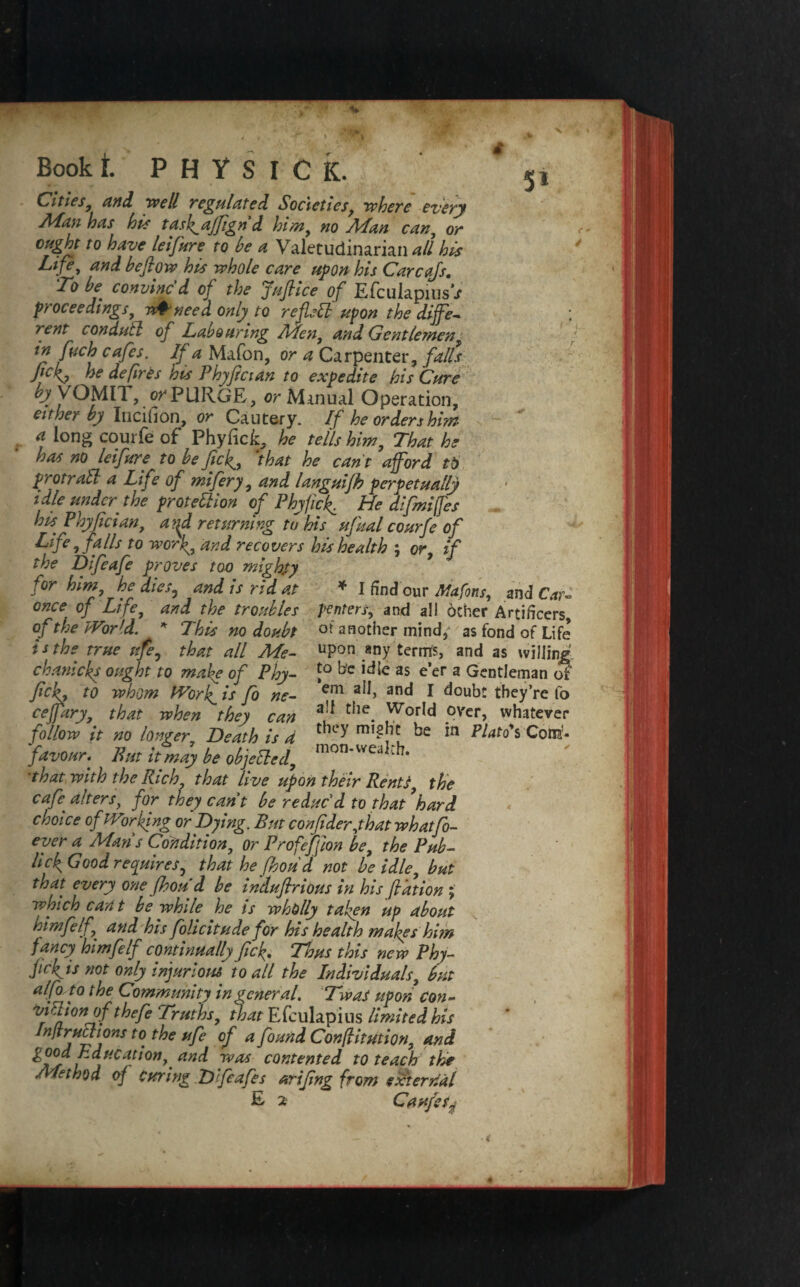 Book I. PHYSICK.
51
Cities, and well regulated Societies, where every
Man has his task assign'd him, no Man can, or
ought to have leisure to be a Valetudinarian all his
Life, and bestow his whole care upon his Carcass.
To be convinc'd of the Justice of Esculapius's
proceedings, need only to reflect upon the diffe-
rent conduct of Labouring Men, and Gentlemen,
in such cases. If a Mason, or a Carpenter, falls
sick, he desires his Physician to expedite his Cure
by VOMIT, or PURGE, or Manual Operation,
either by Incision, or Cautery. If he orders him
a long course of Physick, he tells him, That he
has no leisure to be sick, that he can't afford to
protract a Life of misery, and languish perpetually
idle under the protection of Physick. He dismisses
his Physician, and returning to his usual course of
Life, falls to work, and recovers his health ; or, if
the Disease proves too mighty
for him, he dies, and is rid at
once of Life, and the troubles
of the World. * This no doubt
is the true use, that all Me-
chanicks ought to make of Phy-
sick, to whom Work is so ne-
cessary, that when they can
follow it no longer, Death is a
favour. But it may be objected,
* I find our Masons, and Car-
penters, and all other Artificers,
of another mind, as fond of Life
upon any terms, and as willing
to be idle as e'er a Gentleman of
'em all, and I doubt they're so
all the World over, whatever
they might be in Plato's Com-
mon-wealth.
that with the Rich, that live upon their Rents, the
case alters, for they can't be reduc'd to that hard
choice of Working or Dying. But consider, that whatso-
ever a Man's Condition, or Profession be, the Pub-
lick Good requires, that he shou'd not be idle, but
that every one shou'd be industrious in his station ;
which can't be while he is wholly taken up about
himself, and his solicitude for his health makes him
fancy himself continually sick. Thus this new Phy-
sick is not only injurious to all the Individuals, but
also to the Community in general. 'Twas upon con-
viction of these Truths, that Esculapius limited his
Instructions to the use of a sound Constitution, and
good Education, and was contented to teach the
Method of curing Diseases arising from external
E 2
Causes,